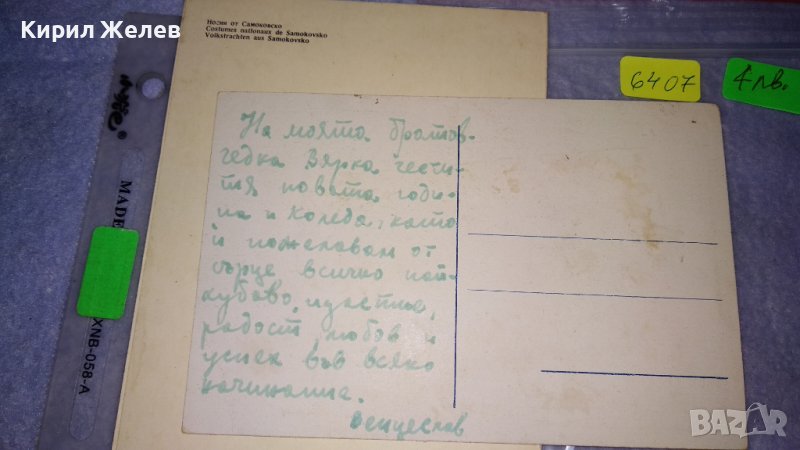 Кирил Желев
Носии от Самоковско
Costumes nationaux de Samokovsko
Volkstrachten aus Samokovsko
6407
4 лв.
MADE
XNB-058-A
На моята братов-
чедка Вярка чести-
тя новата годи-
на и Коледа, като
ѝ пожелавам от
сърце всичко най-
хубаво, щастие,
радост, любов и
успех във всяко
начинание.
Венцеслав
BAZAR